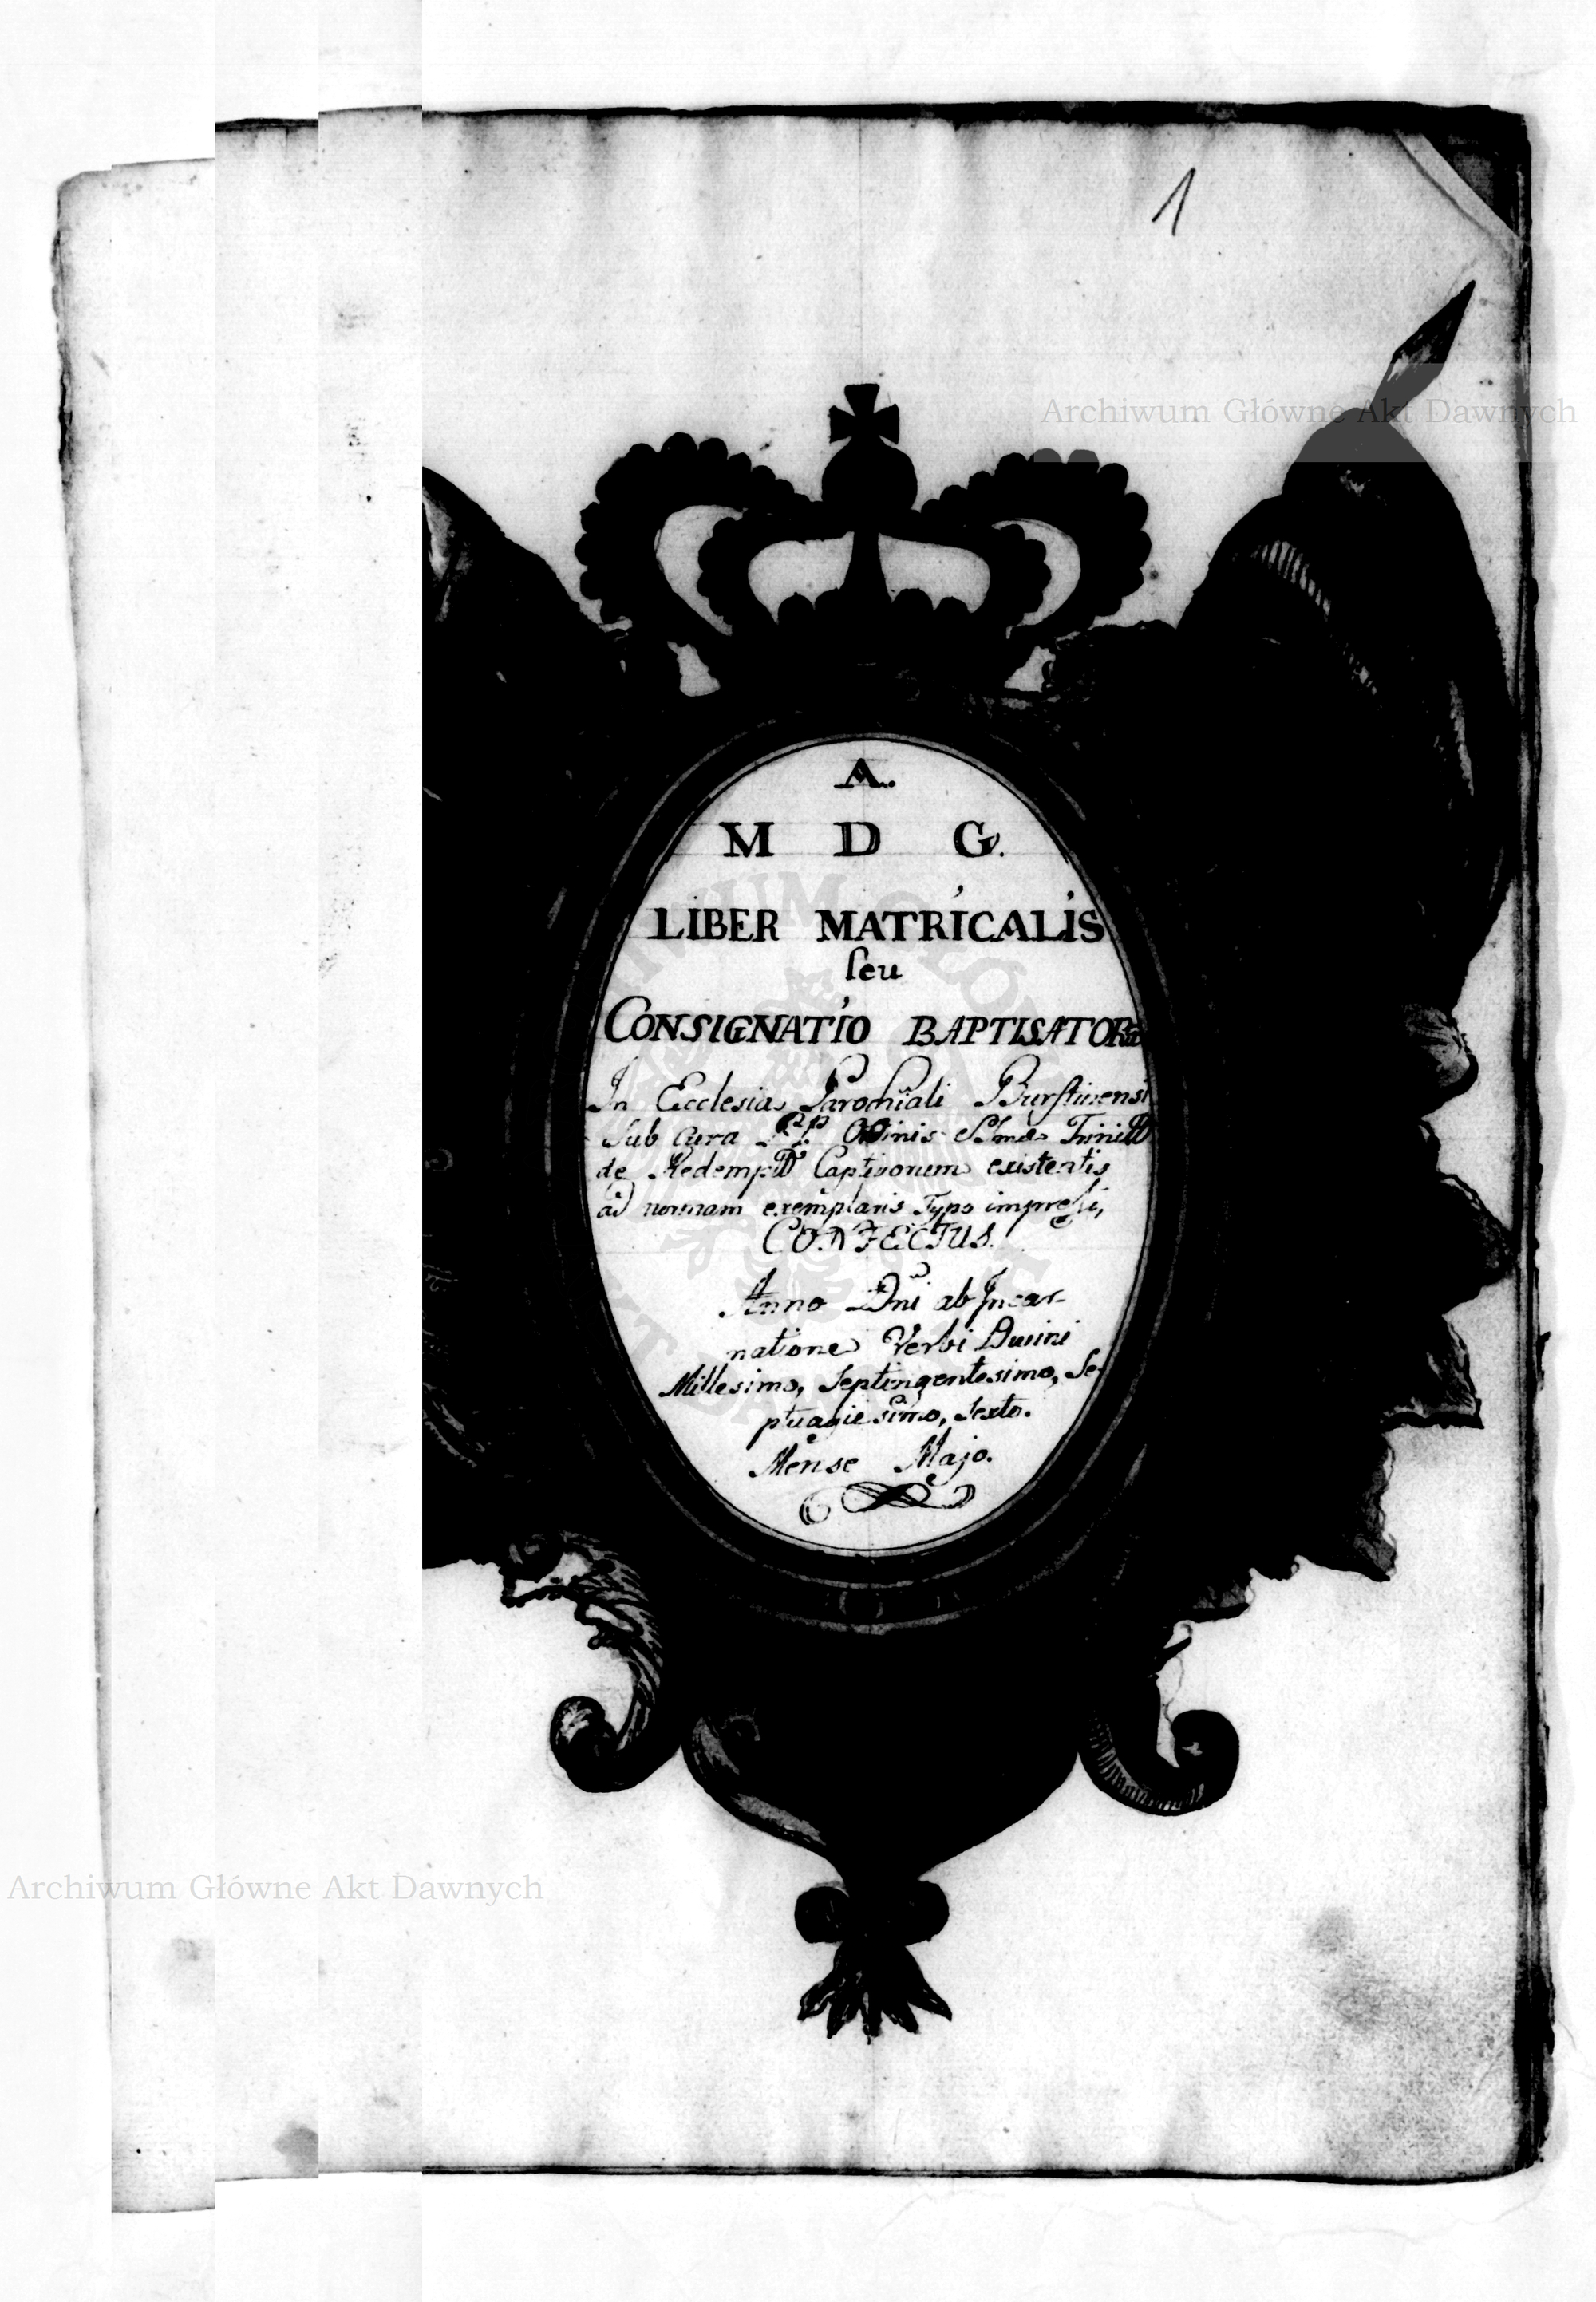 1
Archiwum Główne Akt Dawnych
A.
M D G.
LIBER MATRICALIS
seu
CONSIGNATIO BAPTISATORŨ
In Ecclesia Parochiali Burstinensi
Sub Cura PP. Ordinis SSmae
de Captivorum existentis
ad normam exemplaris Typo impressi,
CONFECTUS.
Anno Dni ab Incar-
natione Verbi Divini
Millesimo, Septingentesimo, Se-
ptuagiesimo, Sexto.
Mense Majo.
Archiwum Główne Akt Dawnych